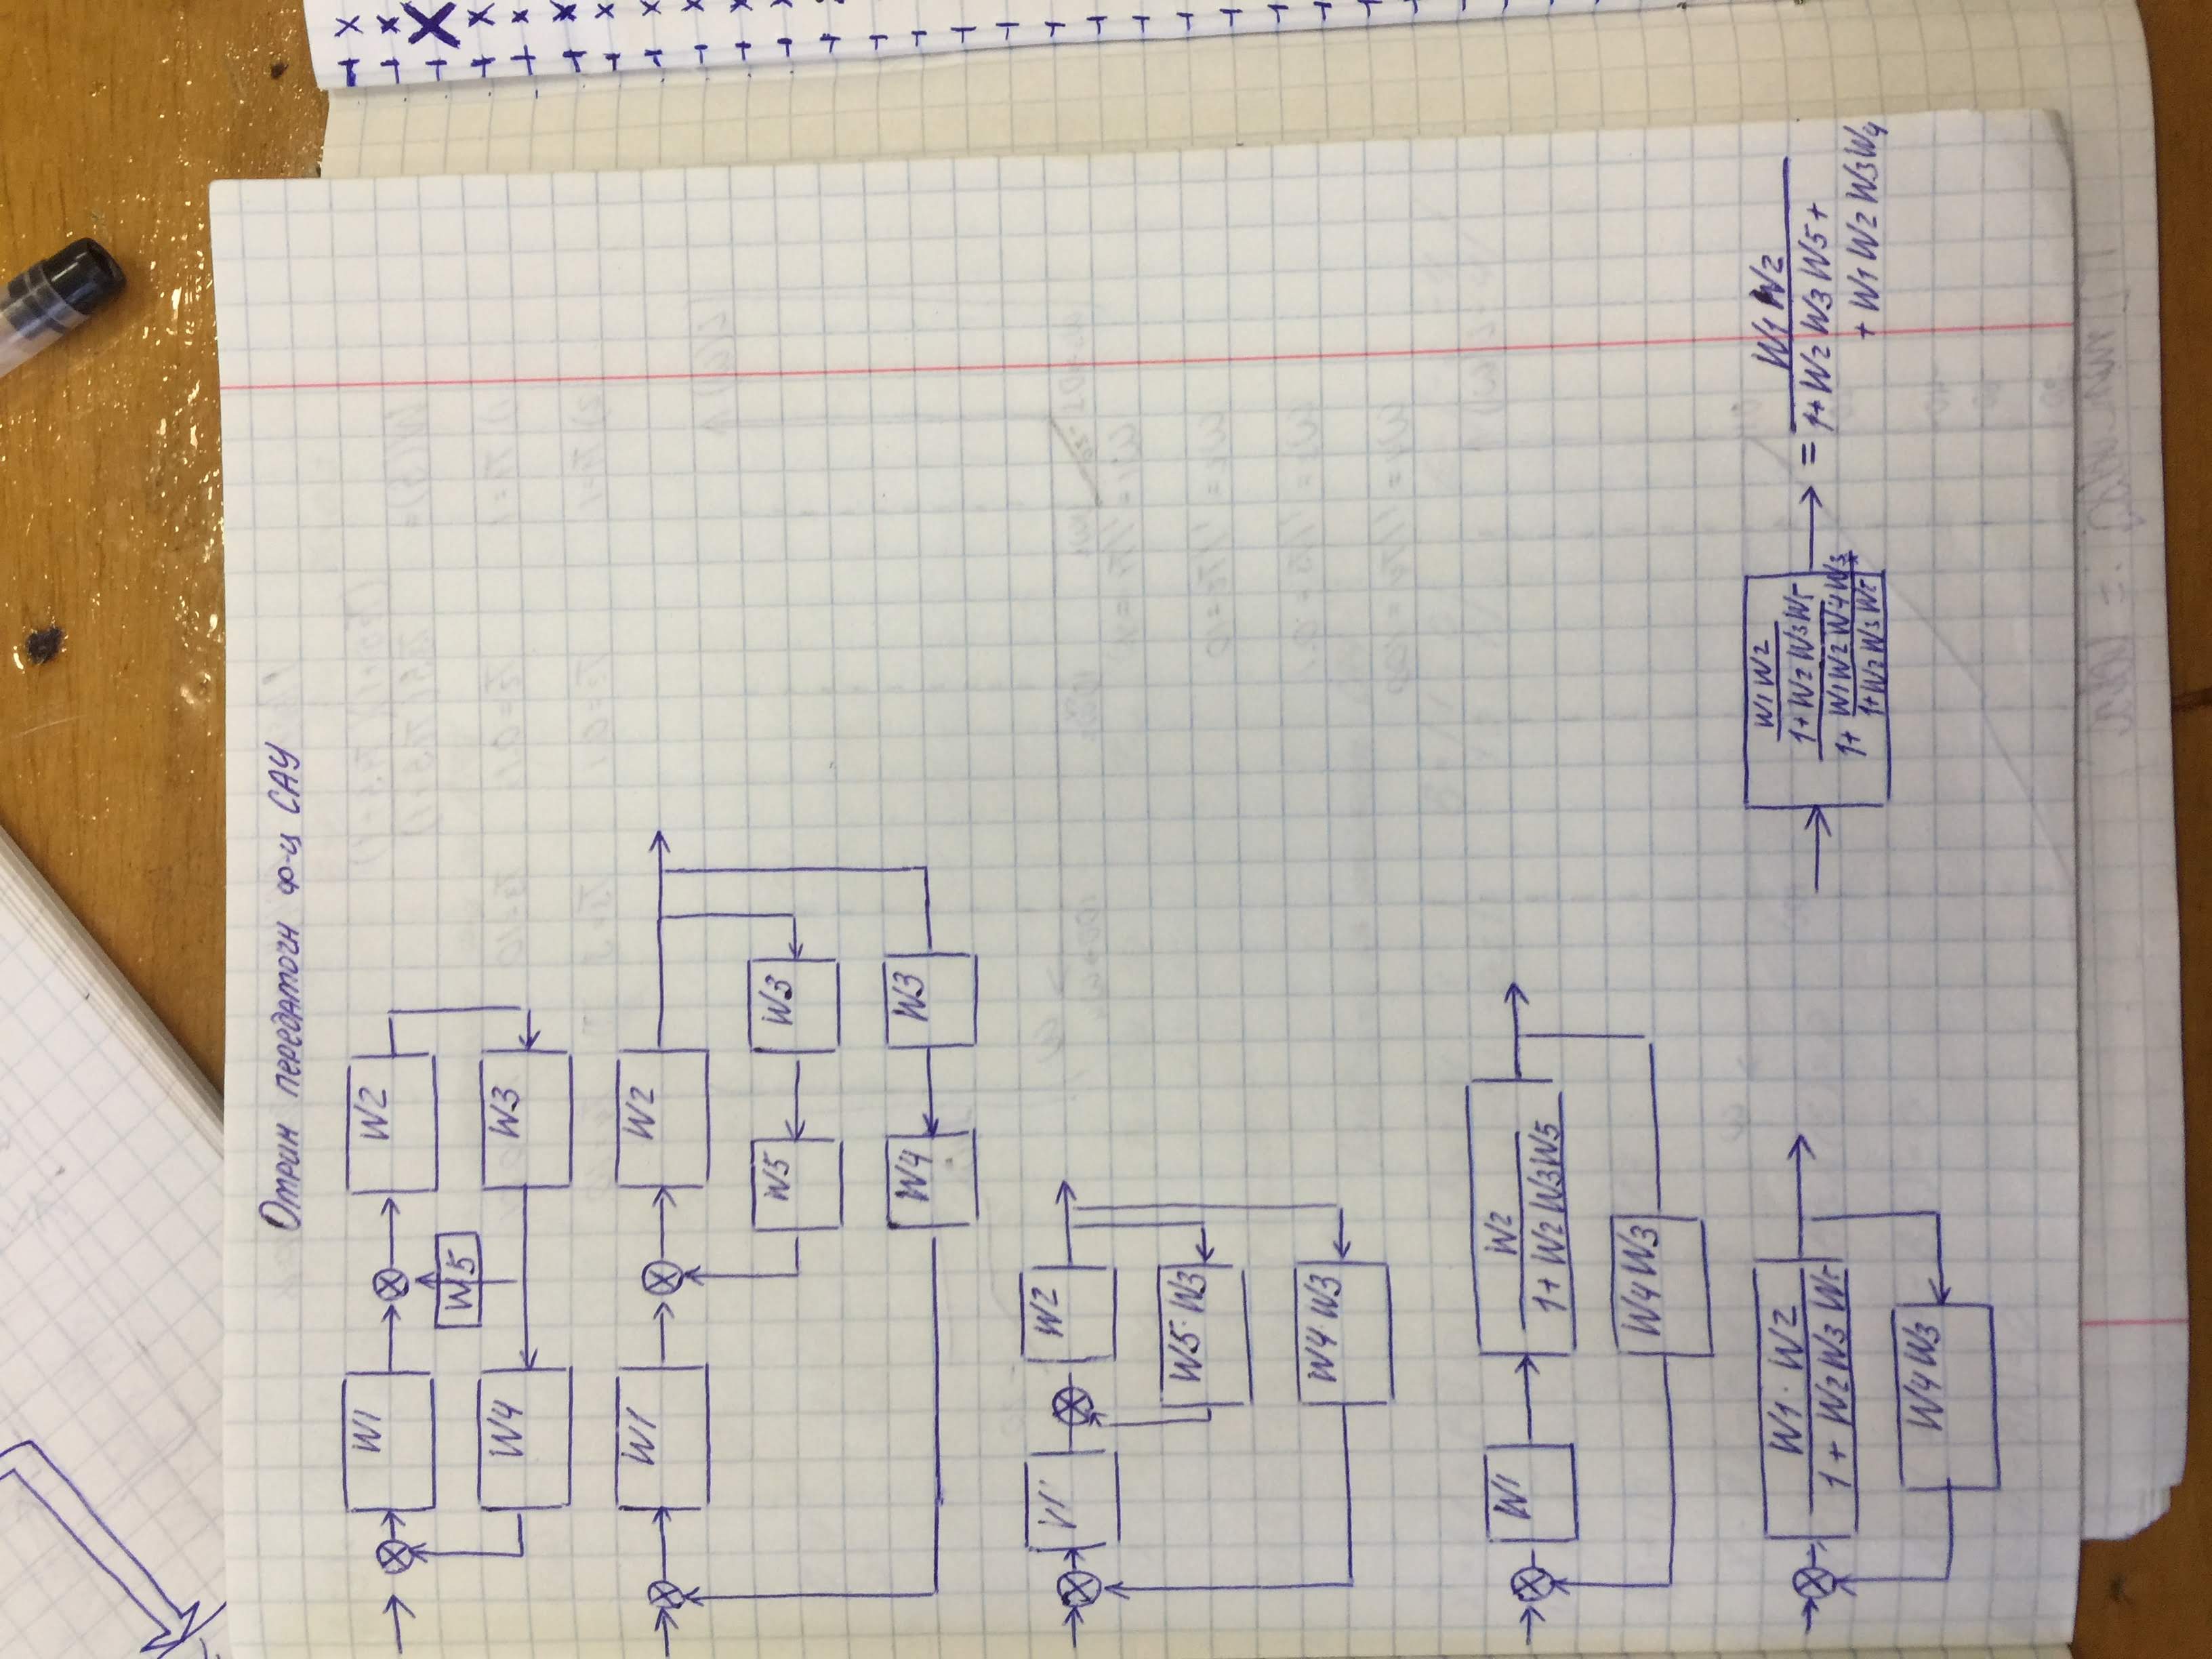 Отрин передаточн ф-ц САУ
W1 W2
W5
W4 W3
W1 W2
W5 W3
W4 W3
W1 W2
W5·W3
W4·W3
W1 W2
1+W2W3W5
W4W3
W1·W2
1+W2W3W5
W4W3
W1W2
1+W2W3W5
1+ W1W2W4W3
1+W2W3W5
= W1W2
1+W2W3W5+
+W1W2W3W4